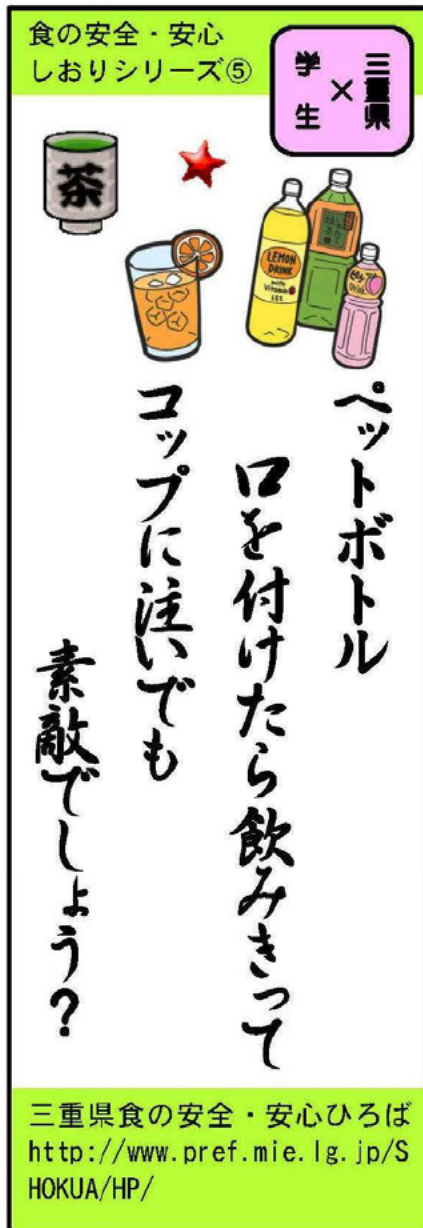 食の安全・安心
しおりシリーズ⑤
三重県
×
学生
茶
LEMON
DRINK
with
Vitamin
ペットボトル
口を付けたら飲みきって
コップに注いでも
素敵でしょう？
三重県食の安全・安心ひろば
http://www.pref.mie.lg.jp/S
HOKUA/HP/